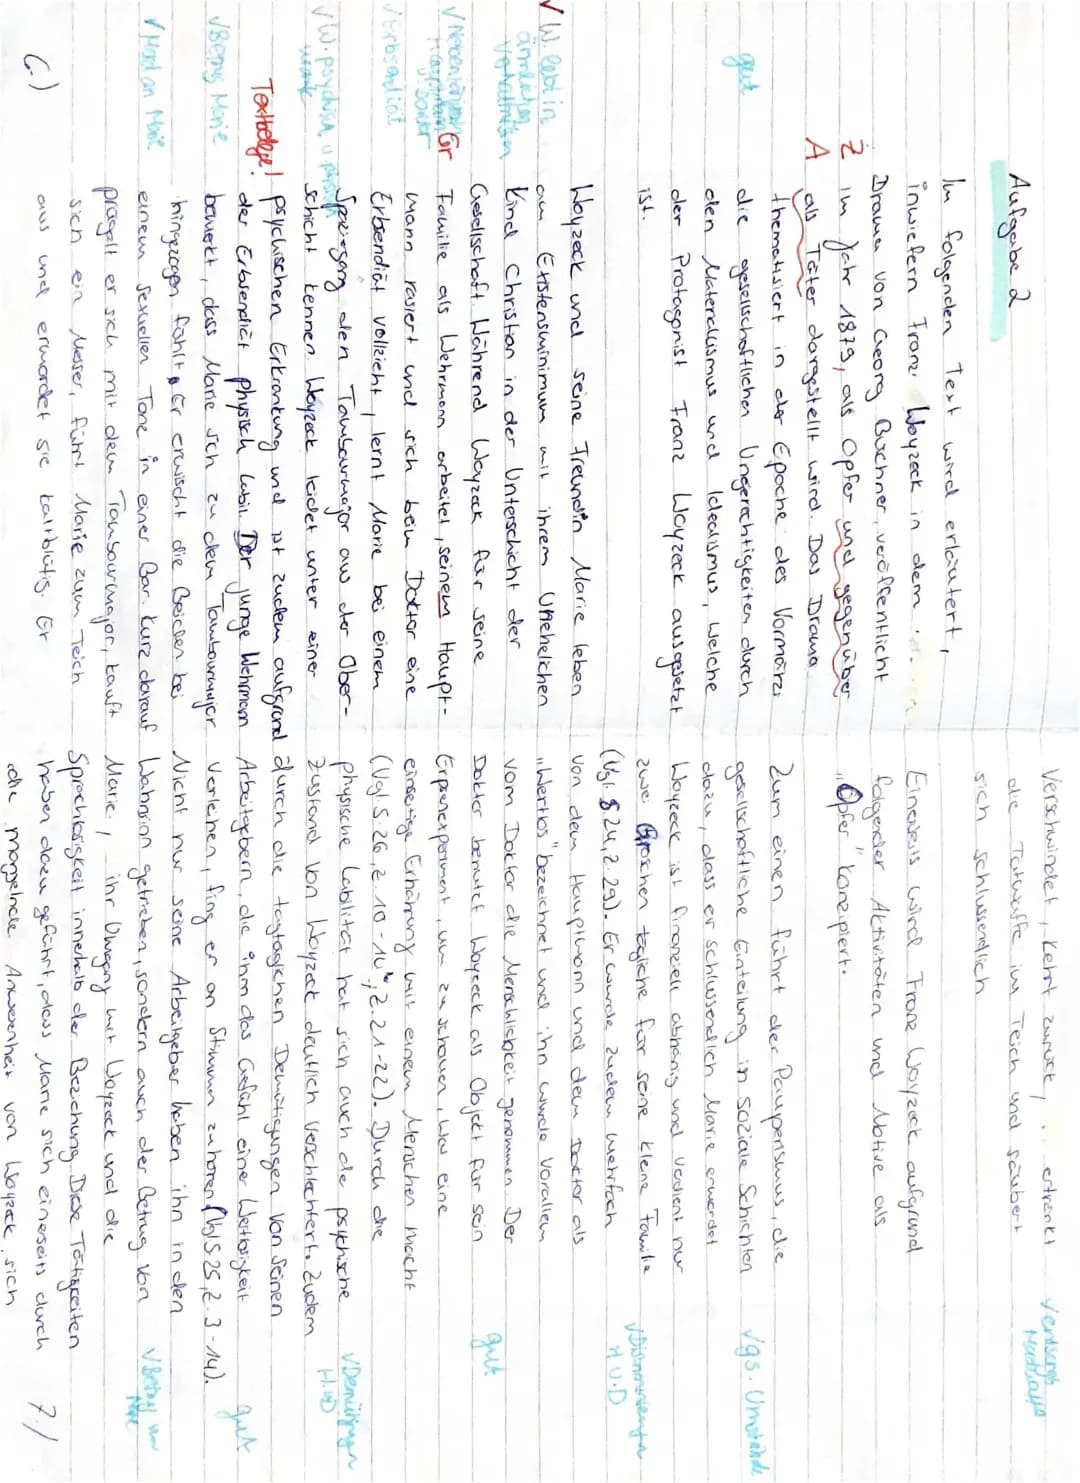 Aufgabe 2
Im folgenden Text wird erläutert,
inwiefern Franz Woyzeck in dem
Drama von Georg Büchner, veröffentlicht
Z im Jahr 1879, als Opfer und gegenüber
A als Täter dargestellt wird. Das Drama
thematisiert in der Epoche des Vormärz
gut die gesellschaftlichen Ungerechtigkeiten durch
den Materialismus und Idealismus, welche
der Protagonist Franz Woyzeck ausgesetzt
ist.
Woyzeck und seine Freundin Marie leben
√ W. lebt in am Existensminimum mit ihrem Unehelichen
ärmlichen Kind Christian in der Unterschicht der
Verhältnissen Gesellschaft Während Woyzeck für seine
√ Gr Familie als Wehrmann arbeitet, seinem Haupt-
Hauptmann Doktor mann rasiert und sich beim Doktor eine
√ Erbsendiät Erbsendiät vollzieht, lernt Marie bei einem
Spaziergang den Tambourmajor aus der Ober-
√ W. psychisch u. physisch schicht kennen. Woyzeck leidet unter einer
psychischen Erkrankung und ist zudem aufgrund
Textbelege! der Erbsendiät physisch labil. Der junge Wehrmann
√ Betrug Marie bemerkt, dass Marie sich zu dem Tambourmajor
hingezogen fühlt. Er erwischt die Beiden bei
√ Mord an Marie einem sexuellen Tanz in einer Bar. Kurz darauf
prügelt er sich mit dem Tambourmajor, kauft
sich ein Messer, führt Marie zum Teich
aus und ermordet sie kaltblütig. Er
6.)
verschwindet, kehrt zurück, ertränkt
die Tatwaffe im Teich und säubert
sich schlussendlich
Einerseits wird Franz Woyzeck aufgrund
folgender Aktivitäten und Motive als
„Opfer" konzipiert.
Zum einen führt der Pauperismus, die
gesellschaftliche Einteilung in soziale Schichten √ gs. Umstände
dazu, dass er schlussendlich Marie ermordet
Woyzeck ist finanziell abhänig und verdient nur
zwei Groschen tägliche für seine kleine Familie
(Vgl. S 24, Z. 29). Er wurde zudem mehrfach H.U.D
von dem Hauptmann und dem Doktor als
„Wertlos" bezeichnet und ihn wurde vorallem
vom Doktor die Menschlichkeit genommen Der
Doktor benutzt Woyzeck als Objekt für sein
Erbsenexperiment, um zu schauen, was eine gut
einseitige Ernährung mit einem Menschen macht
(Vgl. S. 26, Z. 21-22). Durch die
physische Labilität hat sich auch die psychische √ Demütigungen
Zustand von Woyzeck deutlich verschlechtert. Zudem
durch die tagtäglichen Demütigungen von seinen
Arbeitgebern, die ihm das Gefühl einer Wertlosigkeit
verleihen, fing er an Stimmen zu hören (Vgl S 25, Z. 3-14). gut
Nicht nur seine Arbeitgeber haben ihn in den
Wahnsinn getrieben, sondern auch der Betrug von √ Betrug von
Marie, ihr Umgang mit Woyzeck und die Marie
Sprachlosigkeit innerhalb der Beziehung. Diese Tätigkeiten
haben dazu geführt, dass Marie sich einerseits durch
die mangelnde Anwesenheit von Woyzeck, sich
7.)